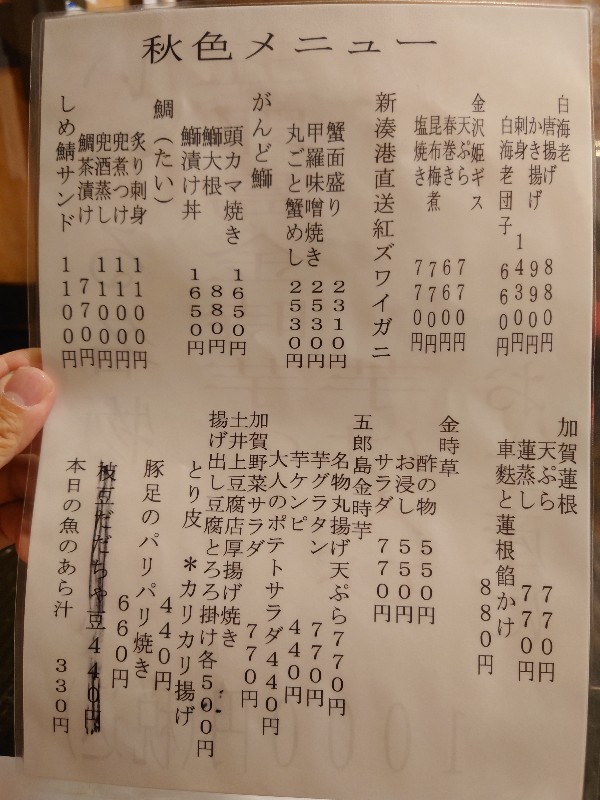 秋色メニュー
白海老
唐揚げ 880円
かき揚げ 990円
刺身 1430円
白海老団子 660円
金沢姫ギス
天ぷら 770円
春巻き 660円
昆布梅煮 770円
塩焼き 770円
新湊港直送紅ズワイガニ
蟹面盛り 2310円
甲羅味噌焼き 2530円
丸ごと蟹めし 2530円
がんど鰤
頭カマ焼き 1650円
鰤大根 880円
鰤漬け丼 1650円
鯛（たい）
炙り刺身 1100円
兜煮つけ 1100円
兜酒蒸し 1100円
鯛茶漬け 770円
しめ鯖サンド 1100円
加賀蓮根
天ぷら 770円
蓮蒸し 770円
車麩と蓮根餡かけ 880円
金時草
酢の物 550円
お浸し 550円
サラダ 770円
五郎島金時芋
名物丸揚げ天ぷら770円
芋グラタン 770円
芋ケンピ 440円
大人のポテトサラダ440円
加賀野菜サラダ 770円
土井上豆腐店厚揚げ焼き
揚げ出し豆腐とろろ掛け各500円
とり皮 *カリカリ揚げ 440円
豚足のパリパリ焼き 660円
枝豆だだちゃ豆440円
本日の魚のあら汁 330円